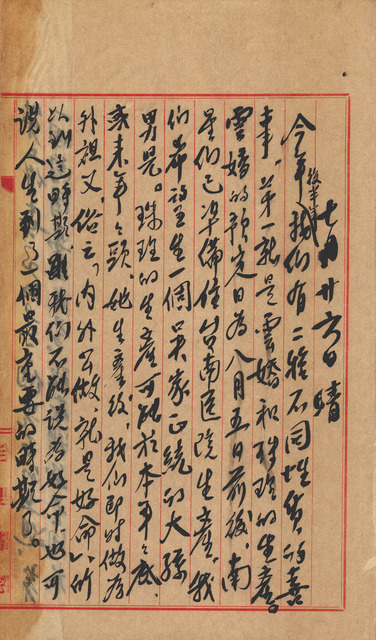 七月廿六日 晴
今年後半年我們有二種不同性質的喜
事,第一就是雲婚和珠班的生產。
雲婚的預定日為八月五日前後,南
星們已準備住台南医院生產,我
們希望生一個吳家正統的大孫
男是。珠班的生產可能於本年々底
或來年々頭,她生產後,我們即時做為
外祖父,俗云,內外公做,就是好命,所
以到這時期,雖我們不能說為好命也可
說人生到了一個最重要的時期了。